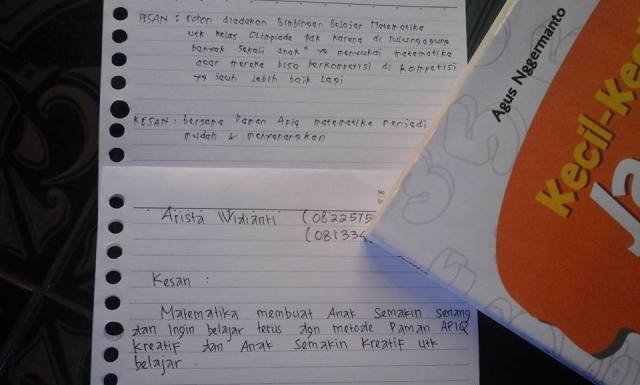 PESAN : mohon diadakan Bimbingan Belajar Matematika
utk kelas Olimpiade pak karena di Tulungagung
banyak sekali anak" yg menyukai matematika
agar mereka bisa berkompetisi di kompetisi
yg jauh lebih baik lagi
KESAN : bersama Paman Apiq matematika menjadi
mudah & menyenangkan
No
Arista Widianti (0822575
(081334
Kesan :
Matematika membuat Anak Semakin senang
dan Ingin belajar terus dgn metode Paman APIQ
Kreatif dan Anak Semakin Kreatif utk
belajar.
Agus Nggermanto
Kecil-Ke
Ja